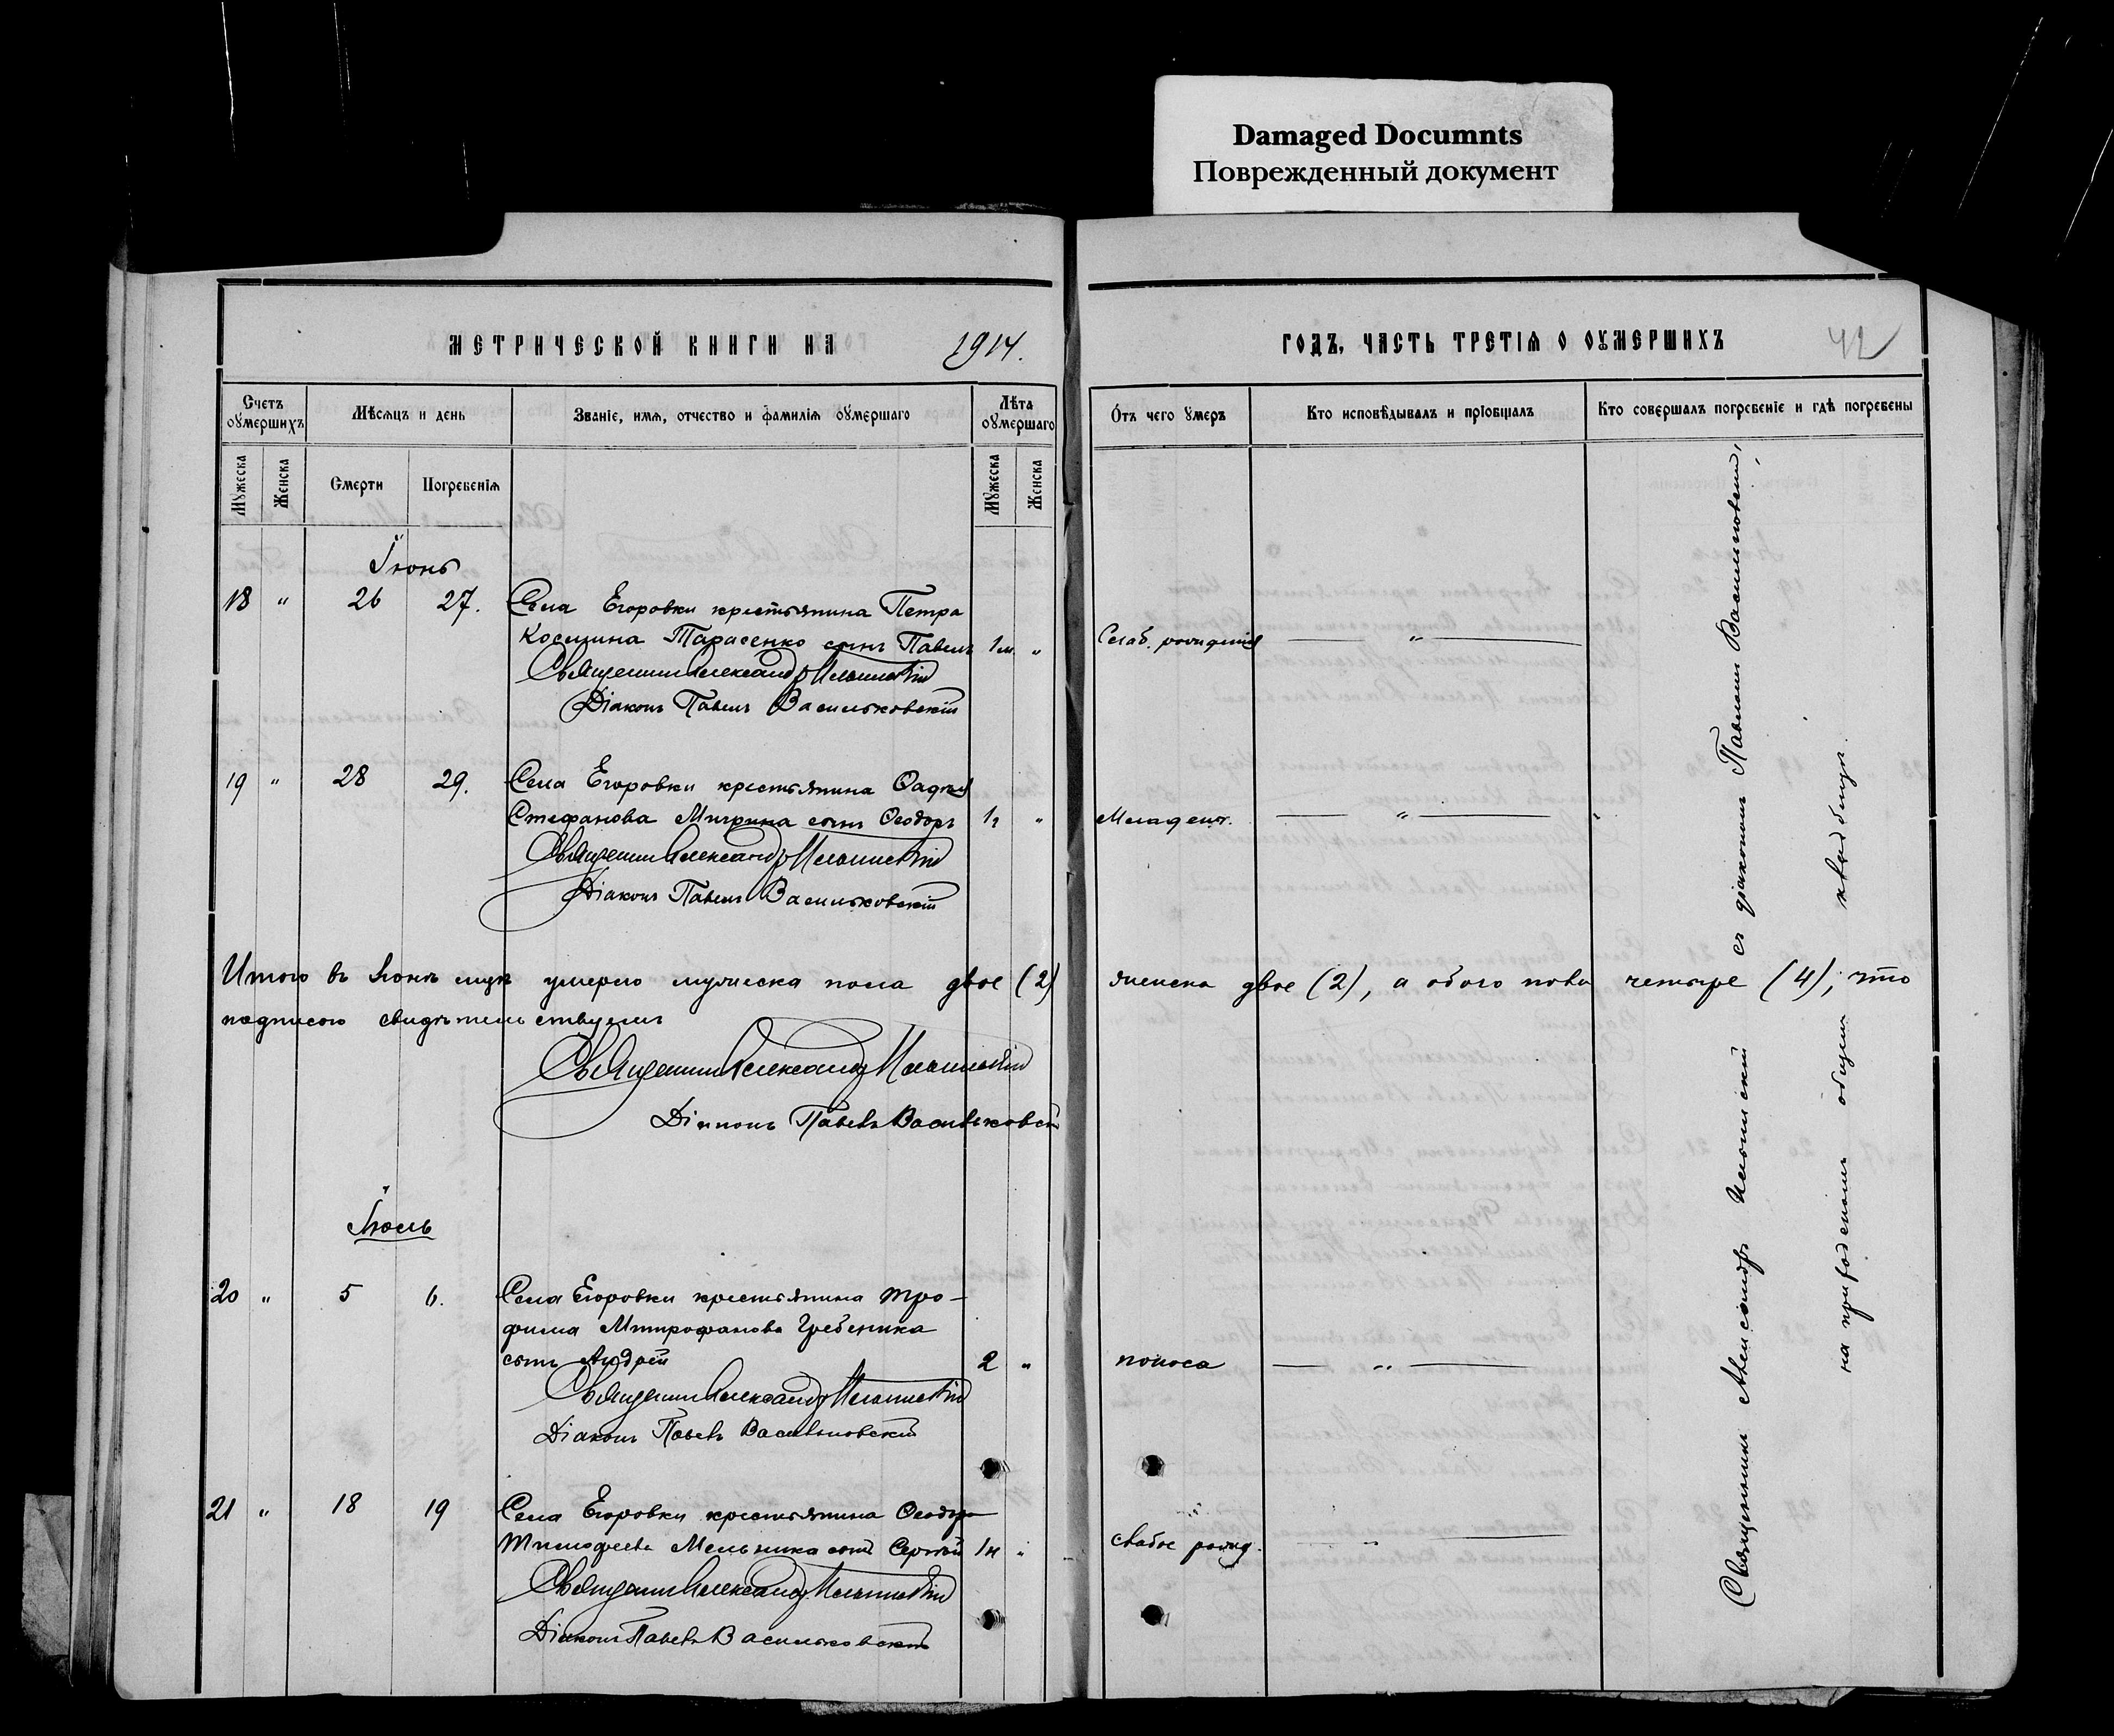 Damaged Documnts
Поврежденный документ
МЕТРИЧЕСКОЙ КНИГИ НА 1914.
ГОДЪ, ЧАСТЬ ТРЕТІЯ О ОУМЕРШИХЪ
42
Счетъ оумершихъ
Мѣсяцъ и день
Званіе, имя, отчество и фамилія оумершаго
Лѣта оумершаго
Отъ чего умеръ
Кто исповѣдывалъ и пріобщалъ
Кто совершалъ погребеніе и гдѣ погребены
Мужеска
Женска
Смерти
Погребенія
Мужеска
Женска
Іюнь
18 " 26 27. Села Егоровки крестьянина Петра
Космина Тарасенко сынъ Павелъ 1м. " Слаб. рожденія — " —
Священникъ Александръ
Діаконъ Павелъ Васильковскій
19 " 28 29. Села Егоровки крестьянина Фадѣя
Стефанова сынъ Ѳеодоръ 1г " Младенч. — " —
Священникъ Александръ
Діаконъ Павелъ Васильковскій
Итого въ Іюнѣ мцѣ умерло мужеска пола двое (2) женска двое (2), а обоего пола четыре (4), что
подписью свидѣтельствуемъ
Священникъ Александръ
Діаконъ Павелъ Васильковскій
Іюль
20 " 5 6. Села Егоровки крестьянина Тро-
фима Митрофанова Гребеника
сынъ Андрей 2 " поноса — " —
Священникъ Александръ
Діаконъ Павелъ Васильковскій
21 " 18 19 Села Егоровки крестьянина Ѳеодора
Тимофеева Мельника сынъ Сергій 1н " слабое рожд. — " —
Священникъ Александръ
Діаконъ Павелъ Васильковскій
Священникъ Александръ съ діакономъ Павломъ Васильковскимъ,
на приходскомъ общемъ кладбищѣ.